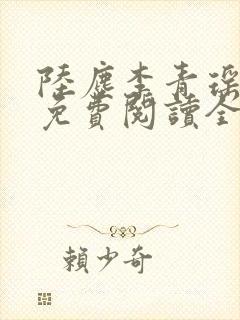 陸塵李青瑶
免費閱讀全
賴少奇